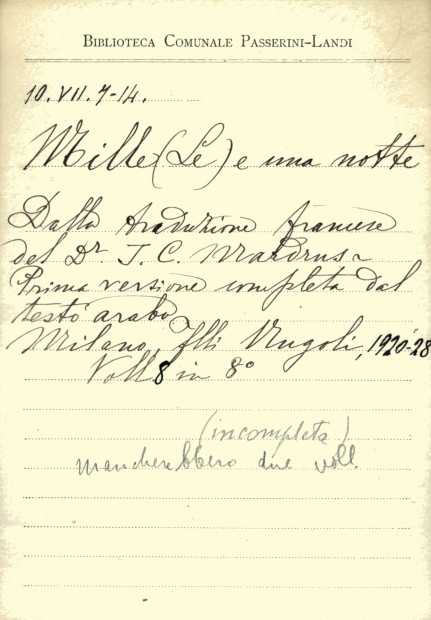 BIBLIOTECA COMUNALE PASSERINI-LANDI
10. VII. 7-14.
Mille (Le) e una notte
Dalla traduzione francese
del Dr. J. C. Mardrus -
Prima versione completa dal
testo arabo
Milano, Flli Vugoli, 1920-28
Voll 8 in 8°
(incompleta)
mancherebbero due voll.